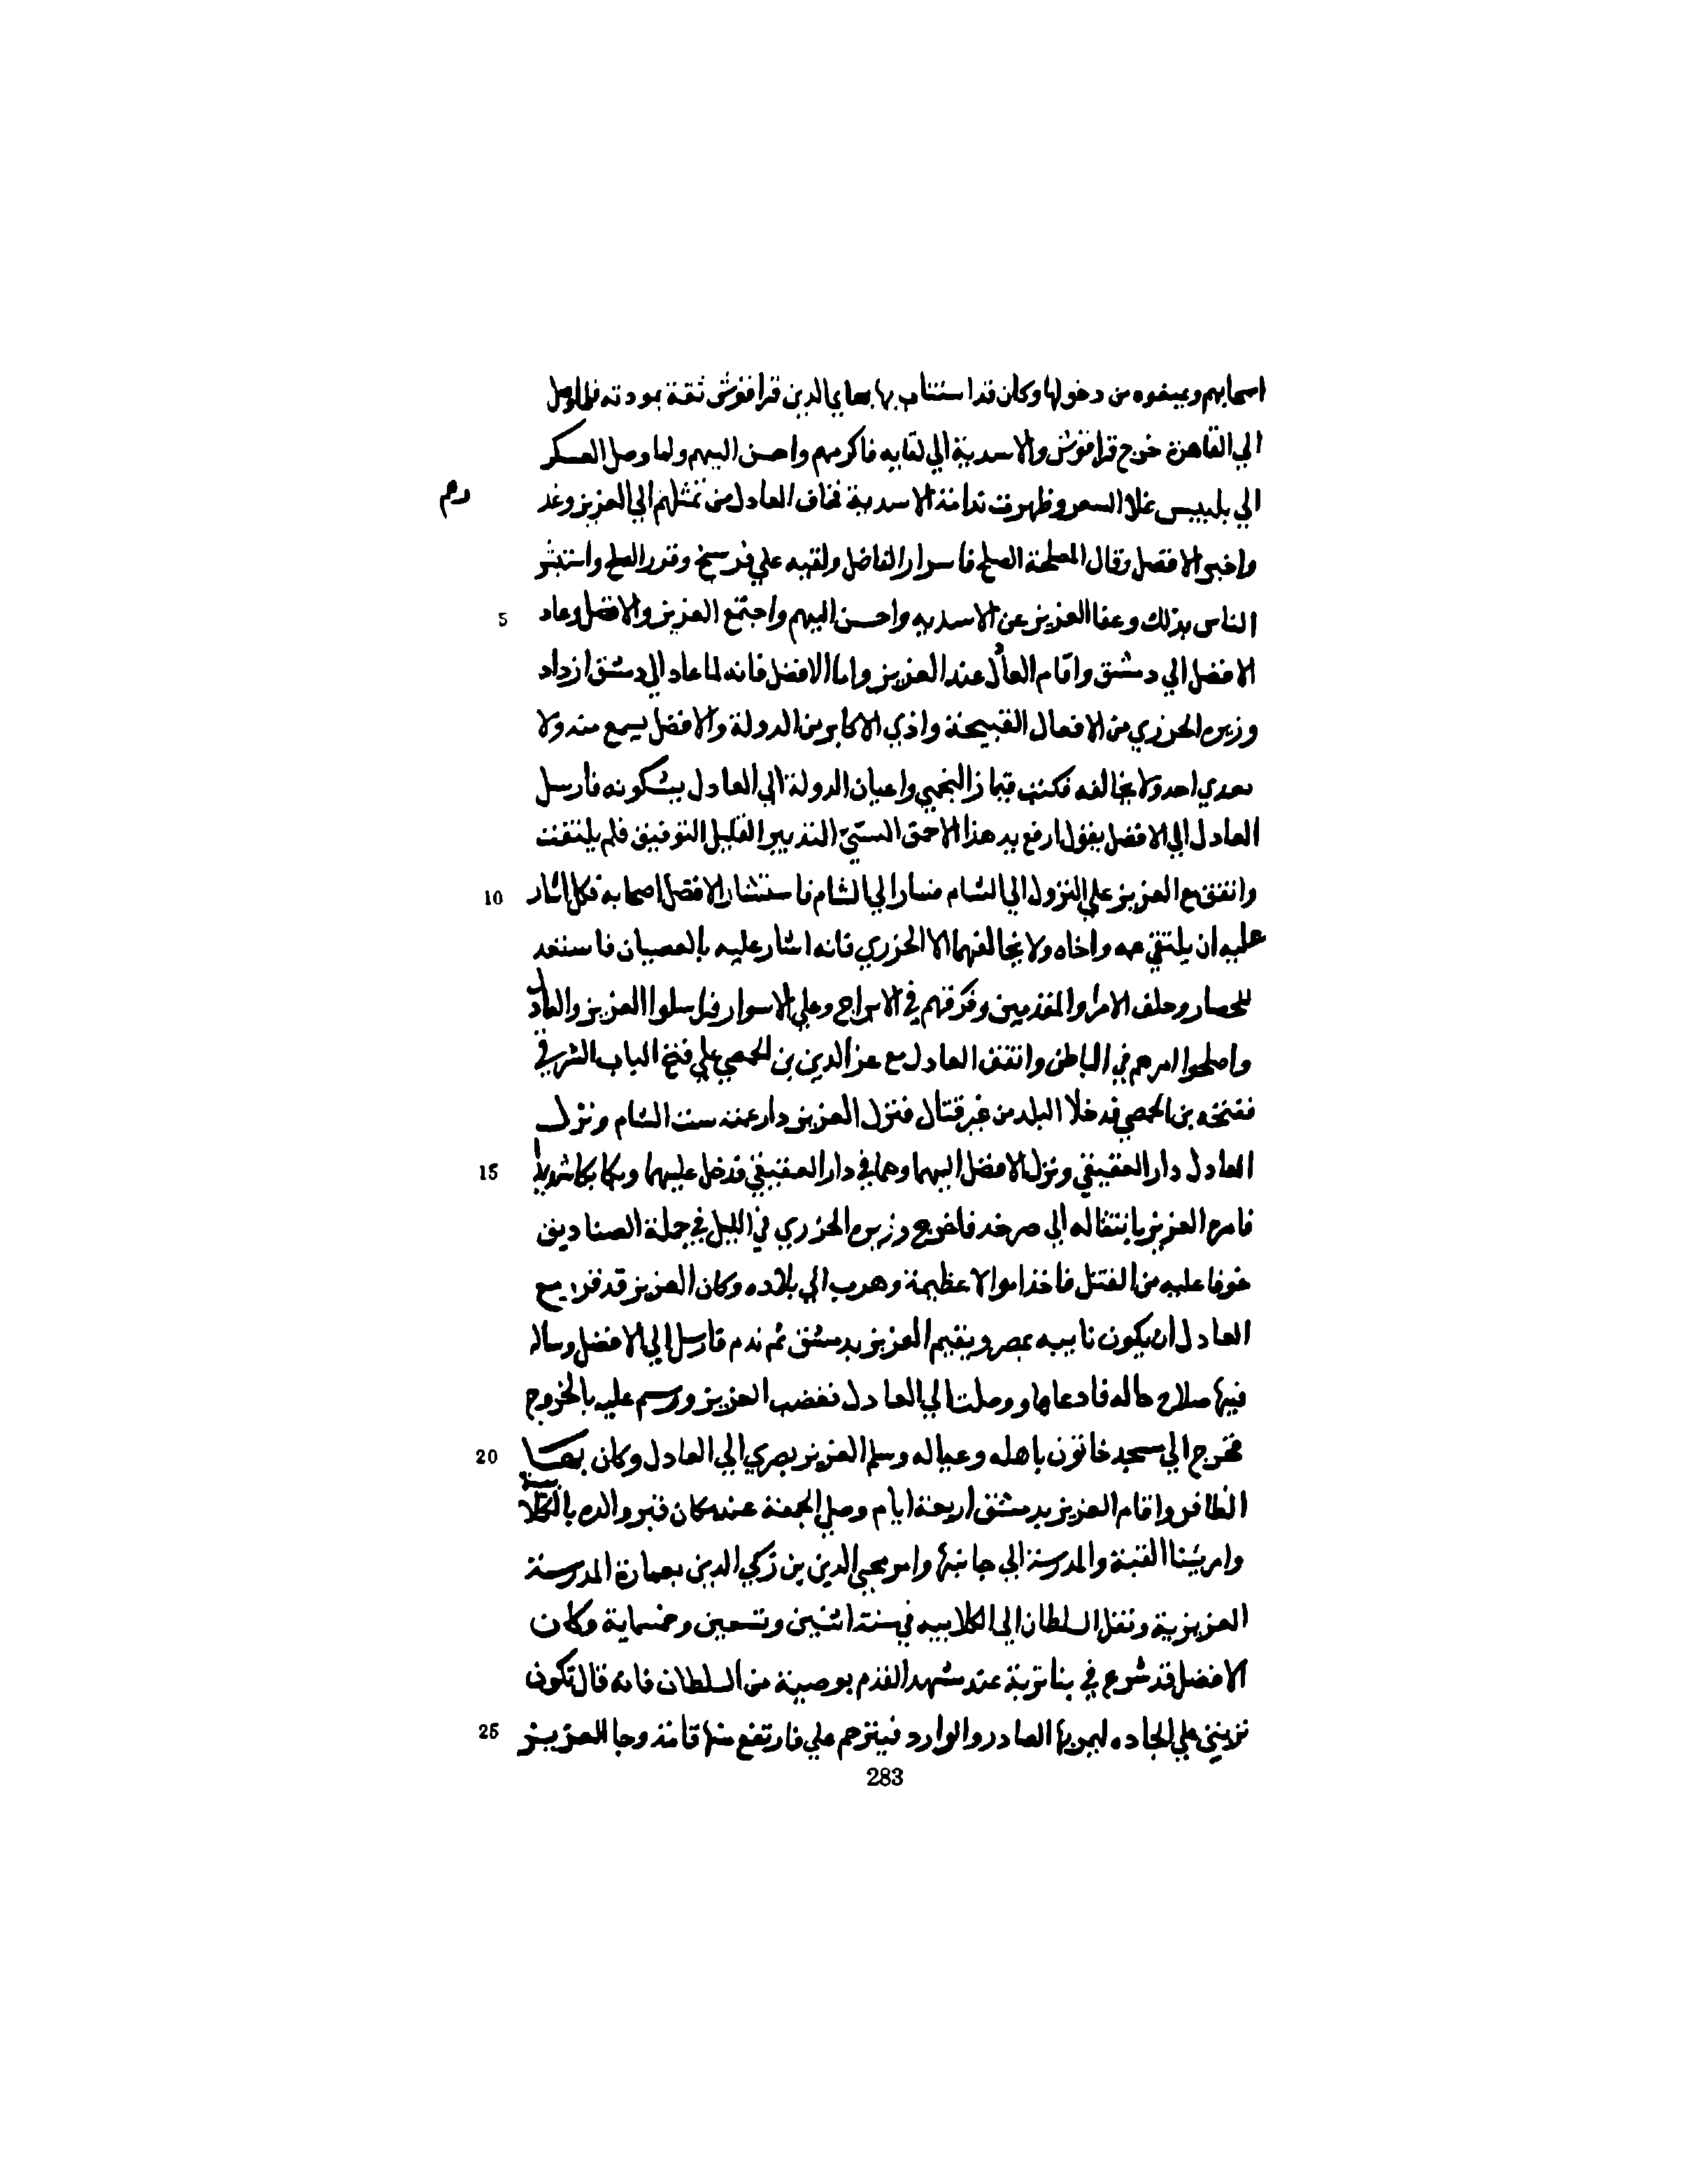 اصحابهم ويمنعوه من دخولها وكان قد استناب بها بهاي الدين قراقوش ثقة بمودته فلما وصل
الي القاهرة خرج قراقوش والاسدية الي لقايه فاكرمهم واحسن اليهم ولما وصل العسكر
الي بلبيس غلا السعر وظهرت ندامة الاسدية فخاف العادل من الي العزيز وغد
واخبر الافضل وقال المصلحة الصلح فاسرار الفاضل ولقيه علي فرسخ وقرر الصلح واستبشر
5 الناس بذلك وعفا العزيز عن الاسديه واحسن اليهم واجتمع العزيز والافضل وعاد
الافضل الي دمشق واقام العادل عند العزيز واما الافضل فانه لما عاد الي دمشق ازداد
وزيره الجزري من الافعال القبيحة واذي الاكابر من الدولة والافضل يسمع منه ولا
يعدي احد ولا يخالفه فكتب قيماز النجمي واعيان الدولة الي العادل يشكونه فارسل
العادل الي الافضل يقول ارفع يد هذا الاحمق السيّ التدبير القليل التوفيق فلم يلتفت
10 واتفق مع العزيز علي النزول الي الشام فسارا الي الشام فاستشار الافضل اصحابه فكل اشار
عليه ان يلتقي عمه واخاه ولا يخالفهما الا الجزري فانه اشار عليه بالعصيان فاستعد
للحصار وحلف الامرا والمقدميين وفرقهم في الابراج وعلي الاسوار فراسلوا العزيز والعادل
واصلحوا امرهم في الباطن واتفق العادل مع عز الدين بن الحمصي علي فتح الباب الشرقي
ففتحه بن الحمصي فدخلا البلد من غير قتال فنزل العزيز دار عمته ست الشام ونزل
15 العادل دار العقيقي ونزل الافضل اليهما وهما في دار العقيقي فدخل عليهما وبكا بكا شديدا
فامره العزيز بانتقاله الي صرخد فاخرج وزيره الجزري في الليل في جملة الصناديق
خوفا عليه من القتل فاخذ اموالا عظيمة وهرب الي بلاده وكان العزيز قد قرر مع
العادل ان يكون نايبه بمصر ويقيم العزيز بدمشق ثم ندم فارسل الي الافضل رساله
فيها صلاح حاله فادعاها ووصلت الي العادل فغضب العزيز ورسم عليه بالخروج
20 فخرج الي مسجد خاتون باهله وعياله وسلم العزيز بصري الي العادل وكان بها
الظافر واقام العزيز بدمشق اربعة ايام وصلي الجمعة عند مكان قبر والده بالكلاسة
وامر ببنا القبة والمدرسة الي جانبها وامر محيي الدين بن زكي الدين بعمارة المدرسة
العزيزية ونقل السلطان الي الكلاسيه في سنة اثنين وتسعين وخمسماية وكان
الافضل قد شرع في بنا تربة عند مشهد القدم بوصية من السلطان فانه قال تكون
25 تربتي علي الجاده ليمر بها الصادر والوارد فيترحم علي فارتفع منها قامة وجا العزيز
283